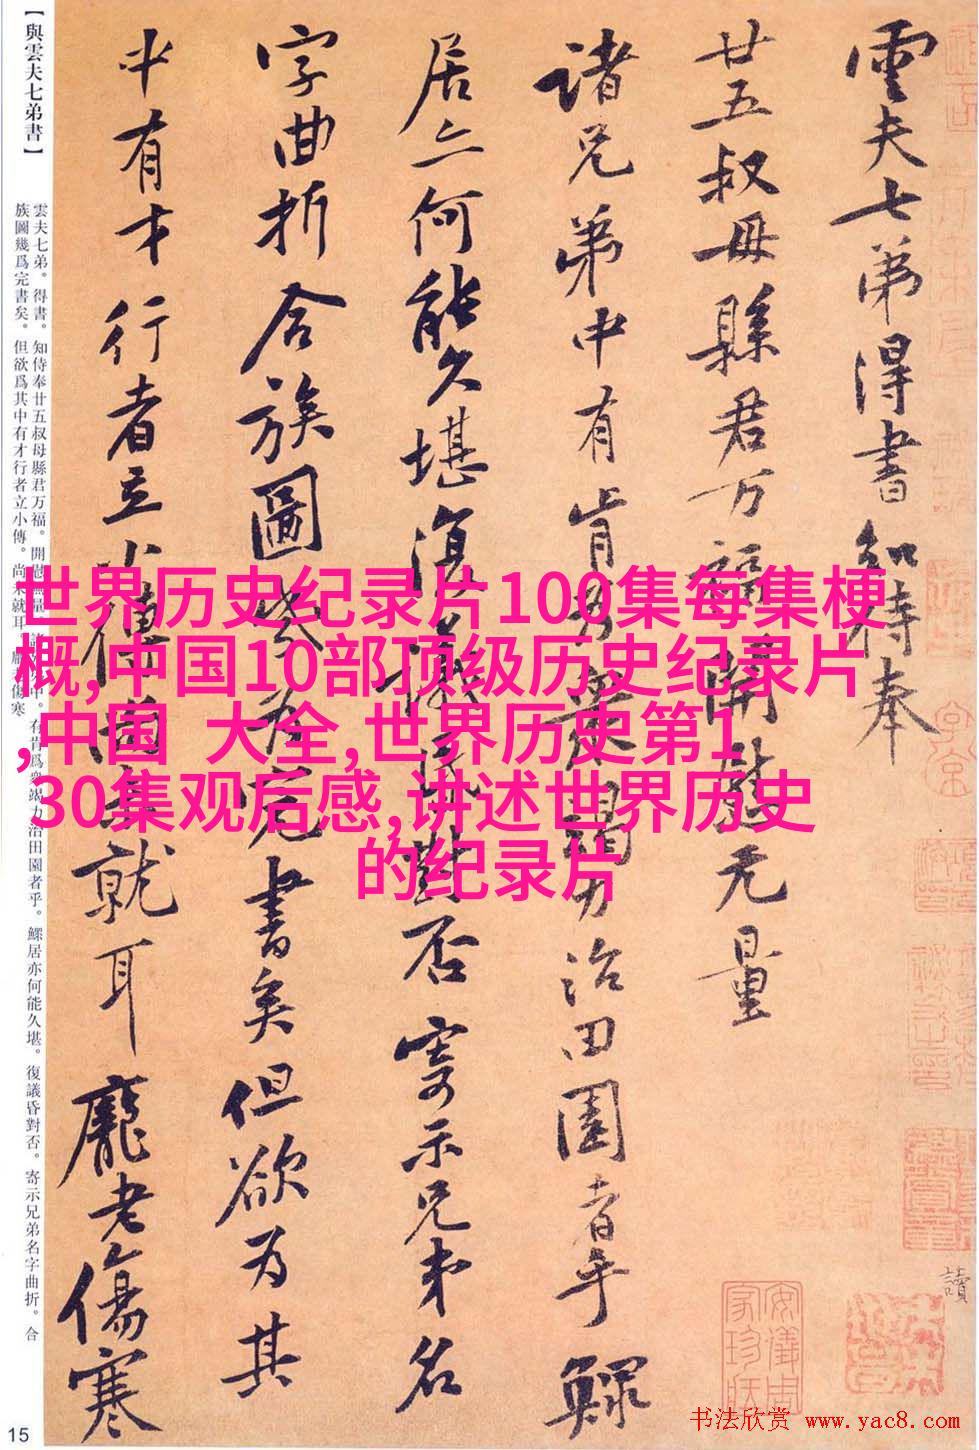 雲夫七弟得書知侍奉
廿五叔母縣君万福開慰无量
諸兄弟中有肯为衆竭力治田園者乎鰥
居亦何能久堪復議昏對否寄示兄弟名
字曲折合族圖幾为完書矣但欲为其
中有才行者立小傳尚未就耳龐老傷寒
讀
安儀周
家珍藏
【與雲夫七弟書】
雲夫七弟。得書。知侍奉廿五叔母縣君万福。開慰無量。諸兄弟中。有肯爲衆竭力治田園者乎。鰥居亦何能久堪。復議昏對否。寄示兄弟名字曲折。合
族圖幾爲完書矣。但欲爲其中有才行者立小傳。尚未就耳。龐老傷寒
15
世界历史纪录片100集每集梗
概,中国10部顶级历史纪录片
,中国 大全,世界历史第1
,30集观后感,讲述世界历史
的纪录片
书法欣赏 www.yac8.com